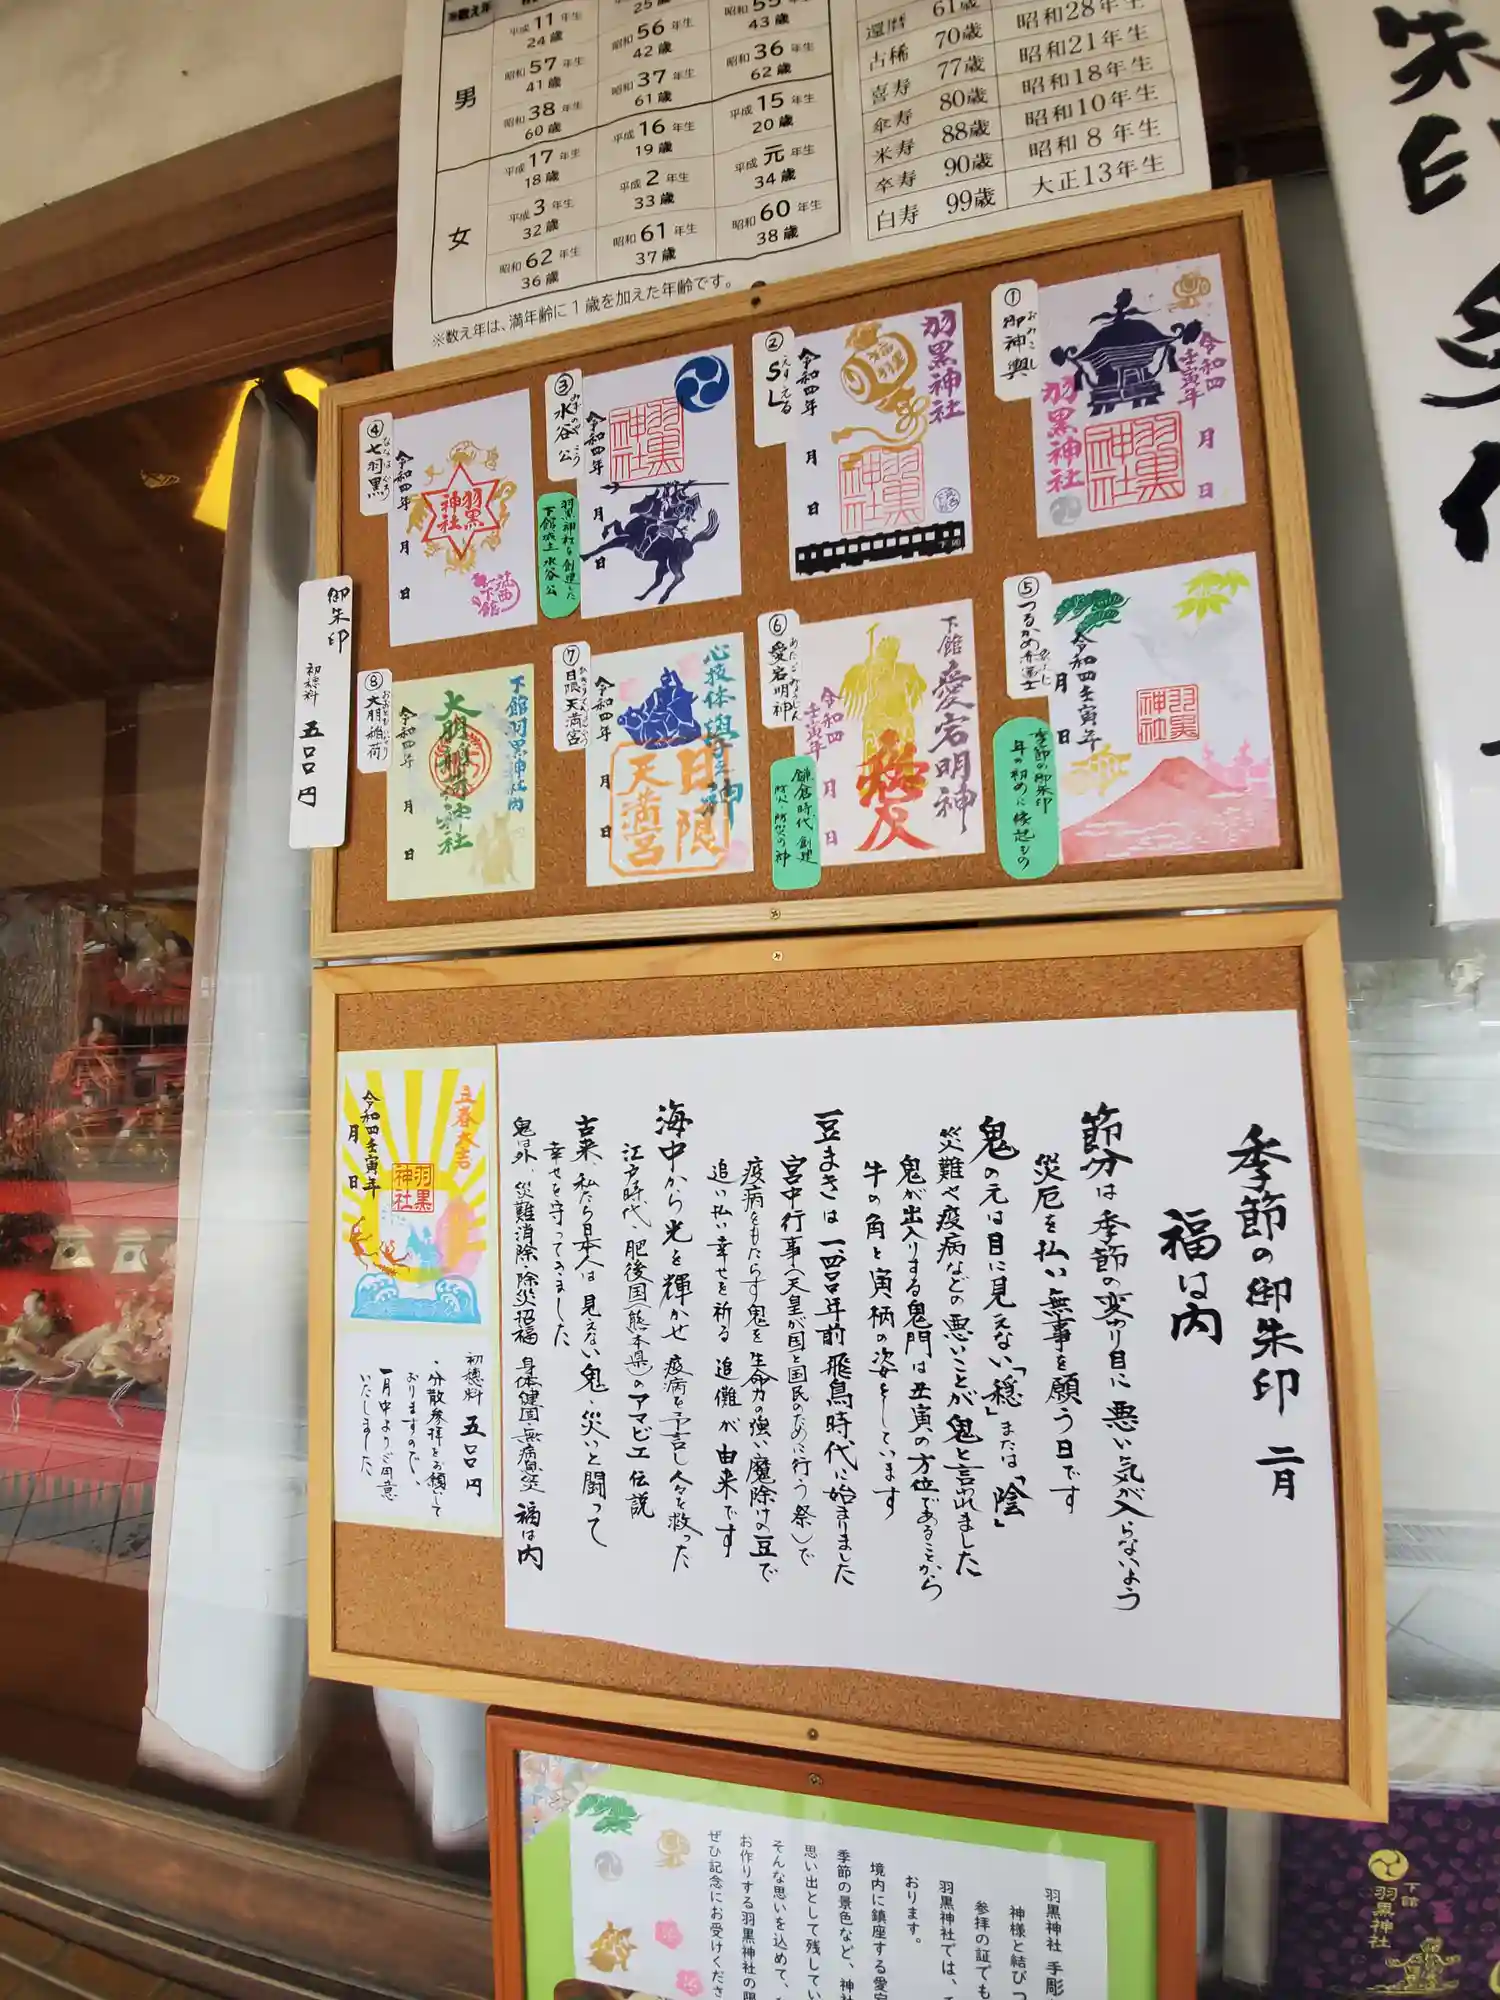 ※数え年
男
平成11年生
24歳
25歳
昭和55年生
43歳
昭和57年生
41歳
昭和56年生
42歳
昭和36年生
62歳
昭和38年生
60歳
昭和37年生
61歳
女
平成17年生
18歳
平成16年生
19歳
平成15年生
20歳
平成3年生
32歳
平成2年生
33歳
平成元年生
34歳
昭和62年生
36歳
昭和61年生
37歳
昭和60年生
38歳
※数え年は、満年齢に1歳を加えた年齢です。
還暦 61歳 昭和28年生
古稀 70歳
喜寿 77歳 昭和21年生
傘寿 80歳 昭和18年生
米寿 88歳 昭和10年生
卒寿 90歳 昭和8年生
白寿 99歳 大正13年生
①御神輿
おみこし
令和四
壬寅年
月 日
羽黒神社
羽黒神社
②SL
えすえる
羽黒神社
令和四年
月 日
羽黒神社
下館
③水谷公
みずのやこう
令和四年
月 日
羽黒神社
羽黒神社を創建した
下館城主 水谷公
④七羽黒
ななはぐろ
令和四年
月 日
羽黒神社
筑西
下館
⑤つるかめ赤富士
令和四壬寅年
月 日
羽黒神社
季節の御朱印
年の初めに縁起もの
⑥愛宕明神
あたごみょうじん
下館 愛宕明神
令和四
壬寅年
月 日
愛
鎌倉時代 創建
防火・防災の神
⑦日限天満宮
心技体 學之神
令和四年
月 日
日限
天満宮
⑧大朋稲荷
下館羽黒神社内
大朋稲荷神社
令和四年
月 日
御朱印
初穂料 五〇〇円
季節の御朱印 二月
福は内
節分は季節の変わり目に悪い気が入らないよう
災厄を払い無事を願う日です
鬼の元は目に見えない「穏」または「陰」
災難や疫病などの悪いことが鬼と言われました
鬼が出入りする鬼門は丑寅の方位であることから
牛の角と寅柄の姿をしています
豆まきは一四〇〇年前飛鳥時代に始まりました
宮中行事(天皇が国と国民のために行う祭)で
疫病をもたらす鬼を生命力の強い魔除けの豆で
追い払い幸せを祈る 追儺が由来です
海中から光を輝かせ 疫病を予言し人々を救った
江戸時代、肥後国(熊本県)のアマビエ伝説
古来、私たち日本人は見えない鬼・災いと闘って
幸せを守ってきました
鬼は外、災難消除・除災招福 身体健固・無病息災 福は内
立春大吉
令和四壬寅年
月 日
羽黒神社
初穂料 五〇〇円
・分散参拝をお願いして
おりますので、
一月中よりご用意
いたしました
羽黒神社 手彫
神様と結びつ
参拝の証でも
羽黒神社では、
おります。
境内に鎮座する愛宕
季節の景色など、神社
思い出として残してい
そんな思いを込めて、
お作りする羽黒神社の
ぜひ記念にお受けくださ
下館
羽黒神社